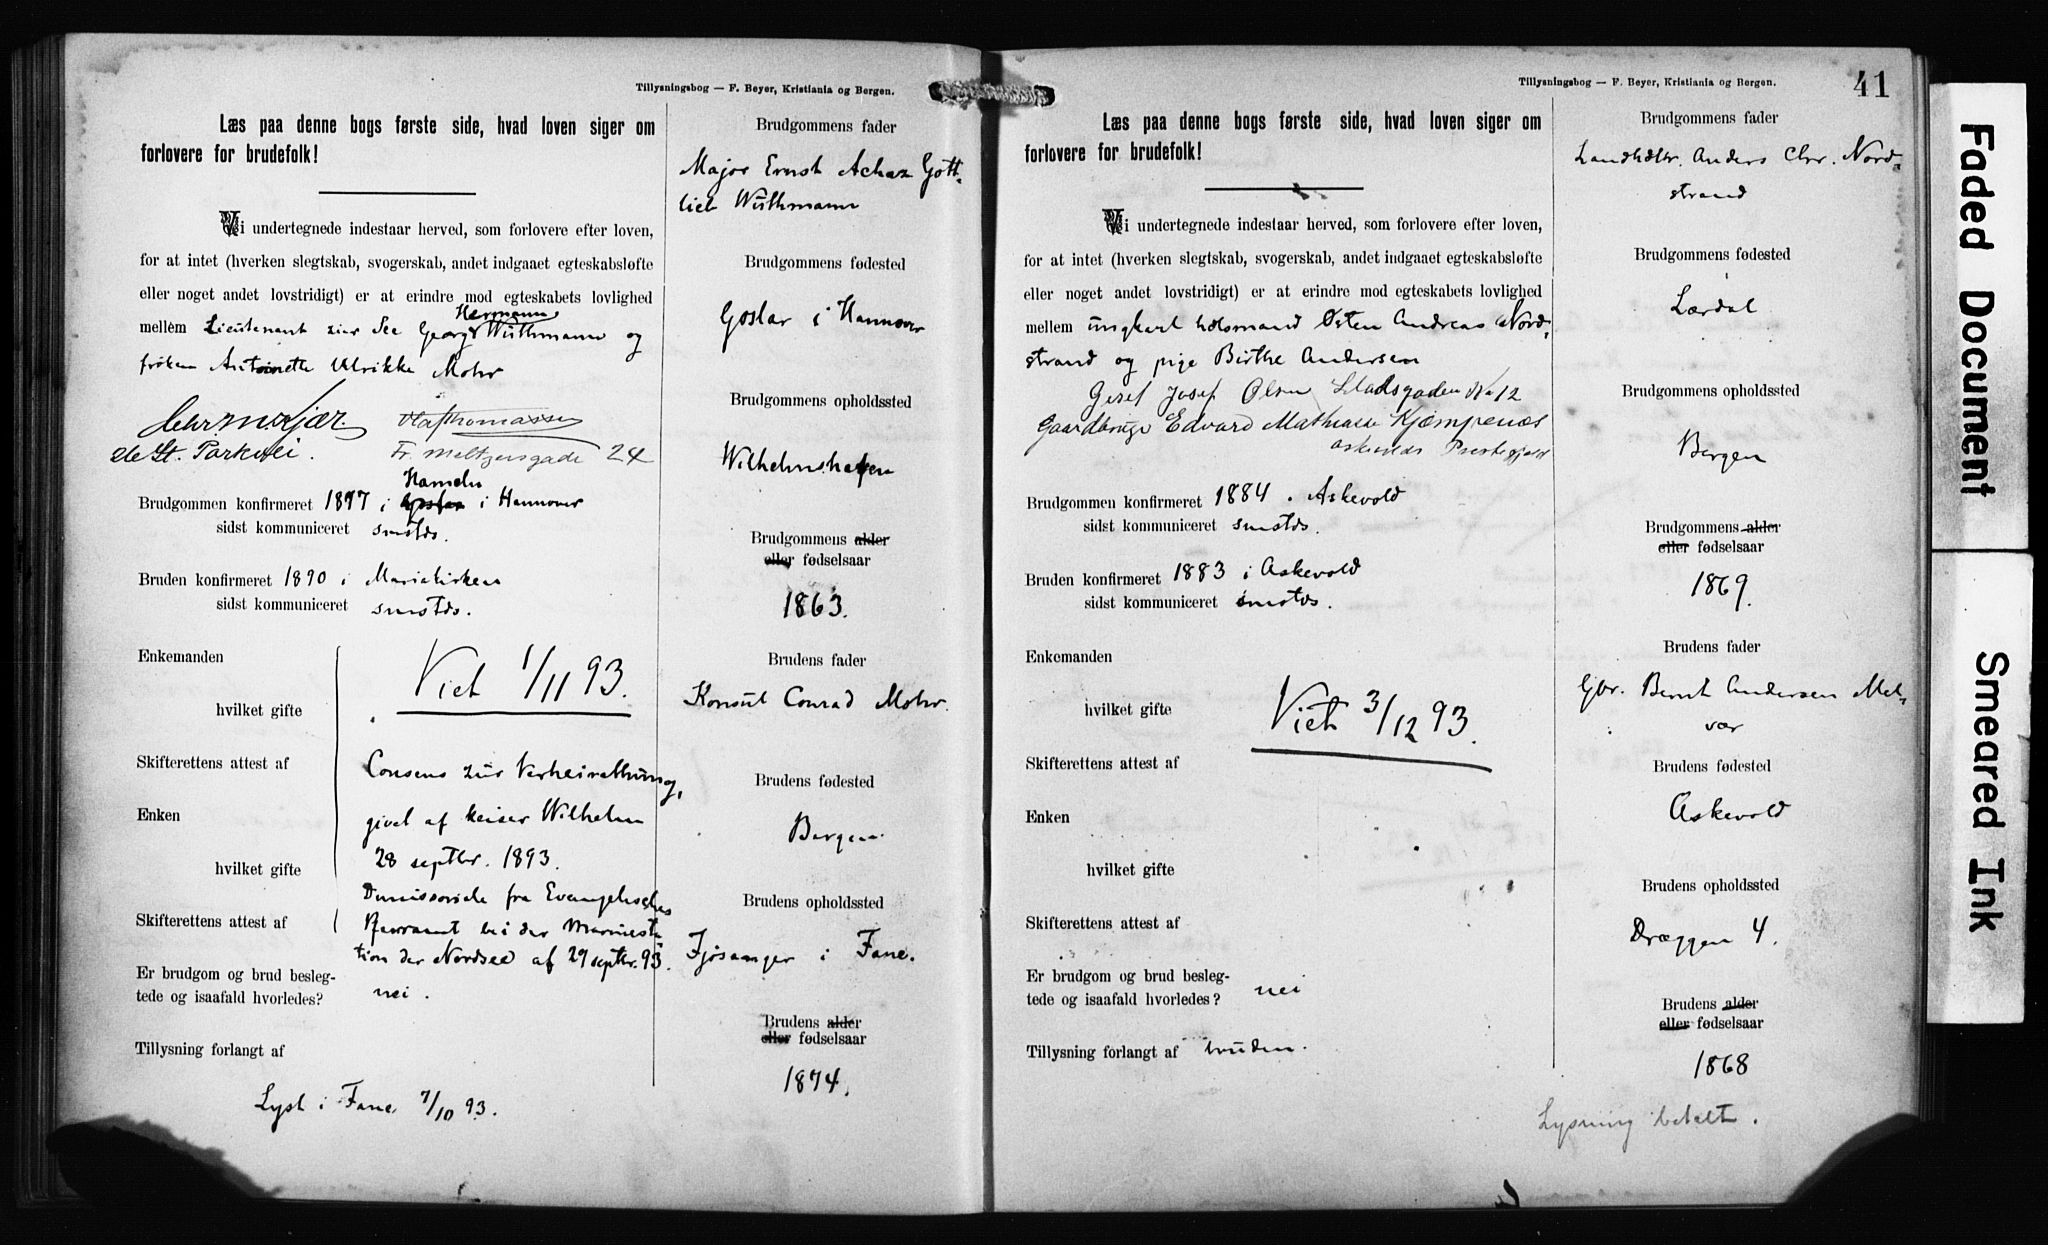 Tillysningsbog — F. Beyer, Kristiania og Bergen.
Læs paa denne bogs første side, hvad loven siger om
forlovere for brudefolk!
Vi undertegnede indestaar herved, som forlovere efter loven,
for at intet (hverken slegtskab, svogerskab, andet indgaaet egteskabsløfte
eller noget andet lovstridigt) er at erindre mod egteskabets lovlighed
Hermann
mellem Lieutenant zur See Georg Wuthmann og
frøken Antoinette Ulrikke Mohr
Chr. M. Kjær. Olaf Thomassen
St. Parkvei. Fr. Meltzersgade 24
Hameln
Brudgommen konfirmeret 1877 i Goslar i Hannover
sidst kommuniceret smstds.
Bruden konfirmeret 1890 i Mariakirken
sidst kommuniceret smstds.
Enkemanden
Viet 1/11 93.
hvilket gifte
Skifterettens attest af
Consens zur Verheirathung,
Enken
givet af keiser Wilhelm
28 septbr. 1893.
hvilket gifte
Dimissoriale fra Evangelisches
Skifterettens attest af
Pfarramt bei der Marinesta
tion der Nordsee af 29 septbr. 93.
Er brudgom og brud besleg-
tede og isaafald hvorledes? nei.
Tillysning forlangt af
Lyst i Fane 7/10 93.
Brudgommens fader
Major Ernst Achaz Gott-
lieb Wuthmann
Brudgommens fødested
Goslar i Hannover
Brudgommens opholdssted
Wilhelmshafen
Brudgommens alder
eller fødselsaar
1863.
Brudens fader
Konsul Conrad Mohr.
Brudens fødested
Bergen
Brudens opholdssted
Fjøsanger i Fane.
Brudens alder
eller fødselsaar
1874.
Tillysningsbog — F. Beyer, Kristiania og Bergen.
41
Læs paa denne bogs første side, hvad loven siger om
forlovere for brudefolk!
Vi undertegnede indestaar herved, som forlovere efter loven,
for at intet (hverken slegtskab, svogerskab, andet indgaaet egteskabsløfte
eller noget andet lovstridigt) er at erindre mod egteskabets lovlighed
mellem ungkarl Østen Andreas Nord-
strand og pige Birthe Andersen
Josef Olsen Stadsgaden No 12
Gaardbruger Edvard Mathias Kjempenæs
Askevolds Prestegjeld
Brudgommen konfirmeret 1884 . Askevold
sidst kommuniceret smstds.
Bruden konfirmeret 1883 i Askevold
sidst kommuniceret smstds.
Enkemanden
hvilket gifte
Viet 3/12 93.
Skifterettens attest af
Enken
hvilket gifte
Skifterettens attest af
Er brudgom og brud besleg-
tede og isaafald hvorledes? nei
Tillysning forlangt af bruden.
Brudgommens fader
Landhdlr. Anders Chr. Nord-
strand
Brudgommens fødested
Lærdal
Brudgommens opholdssted
Bergen
Brudgommens alder
eller fødselsaar
1869.
Brudens fader
Gbr. Bernt Andersen Mel-
vær
Brudens fødested
Askevold
Brudens opholdssted
Dræggen 4.
Brudens alder
eller fødselsaar
1868
Lysning betalt.
Faded Document
Smeared Ink